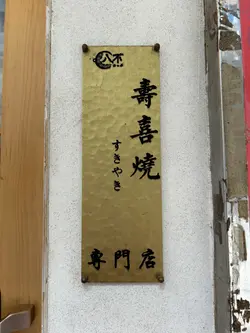 八不
壽喜燒
すきやき
專門店